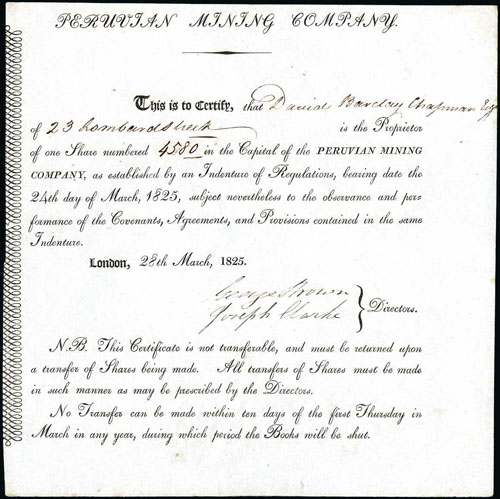 PERUVIAN MINING COMPANY.
This is to Certify, that David Barclay Chapman Esq
of 23 Lombard Street is the Proprietor
of one Share numbered 4580 in the Capital of the PERUVIAN MINING
COMPANY, as established by an Indenture of Regulations, bearing date the
24th day of March, 1825, subject nevertheless to the observance and per-
formance of the Covenants, Agreements, and Provisions contained in the same
Indenture.
London, 28th March, 1825.
George Brown
Joseph Clarke
Directors.
N.B. This Certificate is not transferable, and must be returned upon
a transfer of Shares being made. All transfers of Shares must be made
in such manner as may be prescribed by the Directors.
No Transfer can be made within ten days of the first Thursday in
March in any year, during which period the Books will be shut.